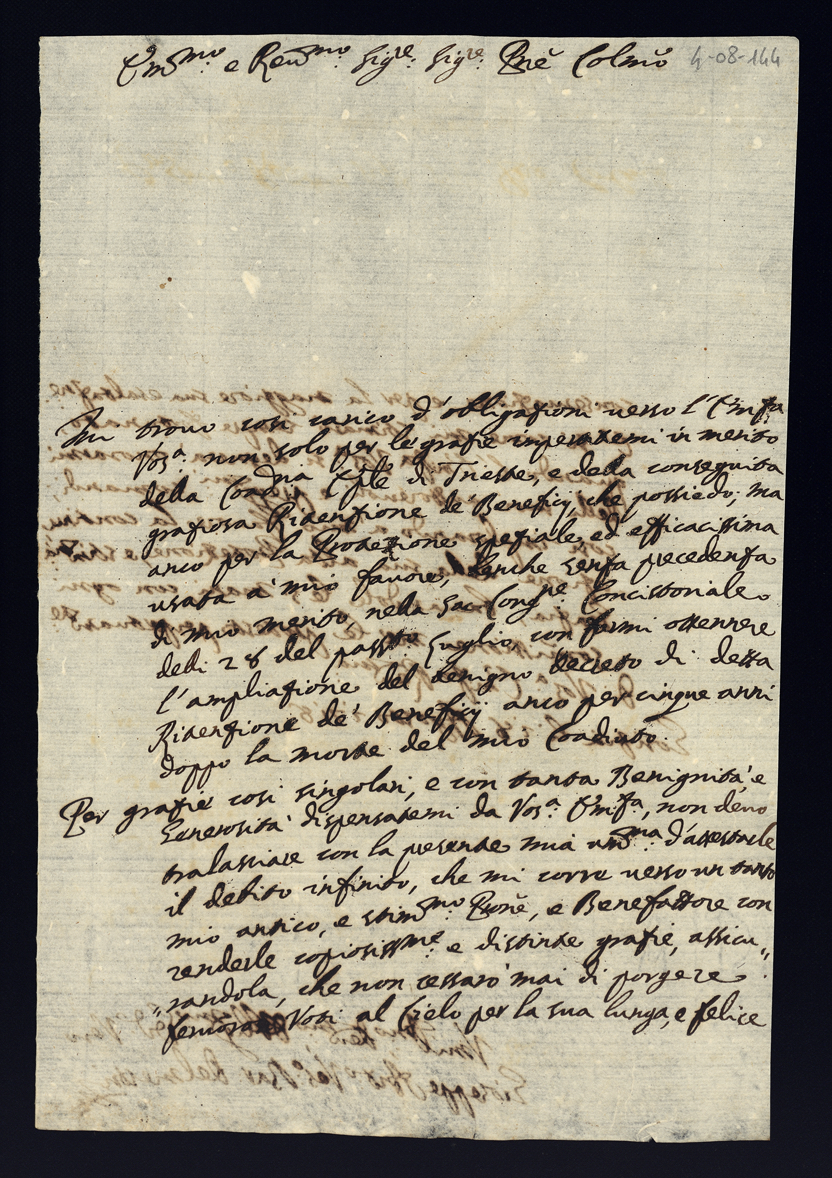 Em̃mo: e Reũmo: Sigre: Sigre: Prõe Colmõ
4-08-144
Mi trovo così carico d'obligazioni verso l'Emza
Vosa: non solo per le grazie imperatemi in merito
della Coadria Eplẽ di Trieste, e della conseguita
graziosa Ritenzione de' Beneficij, che possiedo; ma
anco per la Protezione speziale, ed efficacissima
usata à mio favore, benche senza precedenza
di mio merito, nella Sac: Congne Concistoriale
deli 28 del passto Luglio, con farmi ottennere
l'ampliazione del benigno decreto di detta
Ritenzione de' Benefizij anco per cinque anni
doppo la morte del mio Coadiuto.
Per grazie così singolari, e con tanta Benignità, e
Generosità dispensatemi da Vosa: Emza, non devo
tralassiare con la presente mia um̃ma: d'attestarle
il debito infinito, che mi corre verso un tanto
mio antico, e stim̃mo Pronẽ, e Benefattore con
renderle copiosissme e distinte grazie, assicu„
„randola, che non cessarò mai di porgere
fervorosi Voti al Cielo per la sua lunga, e felice